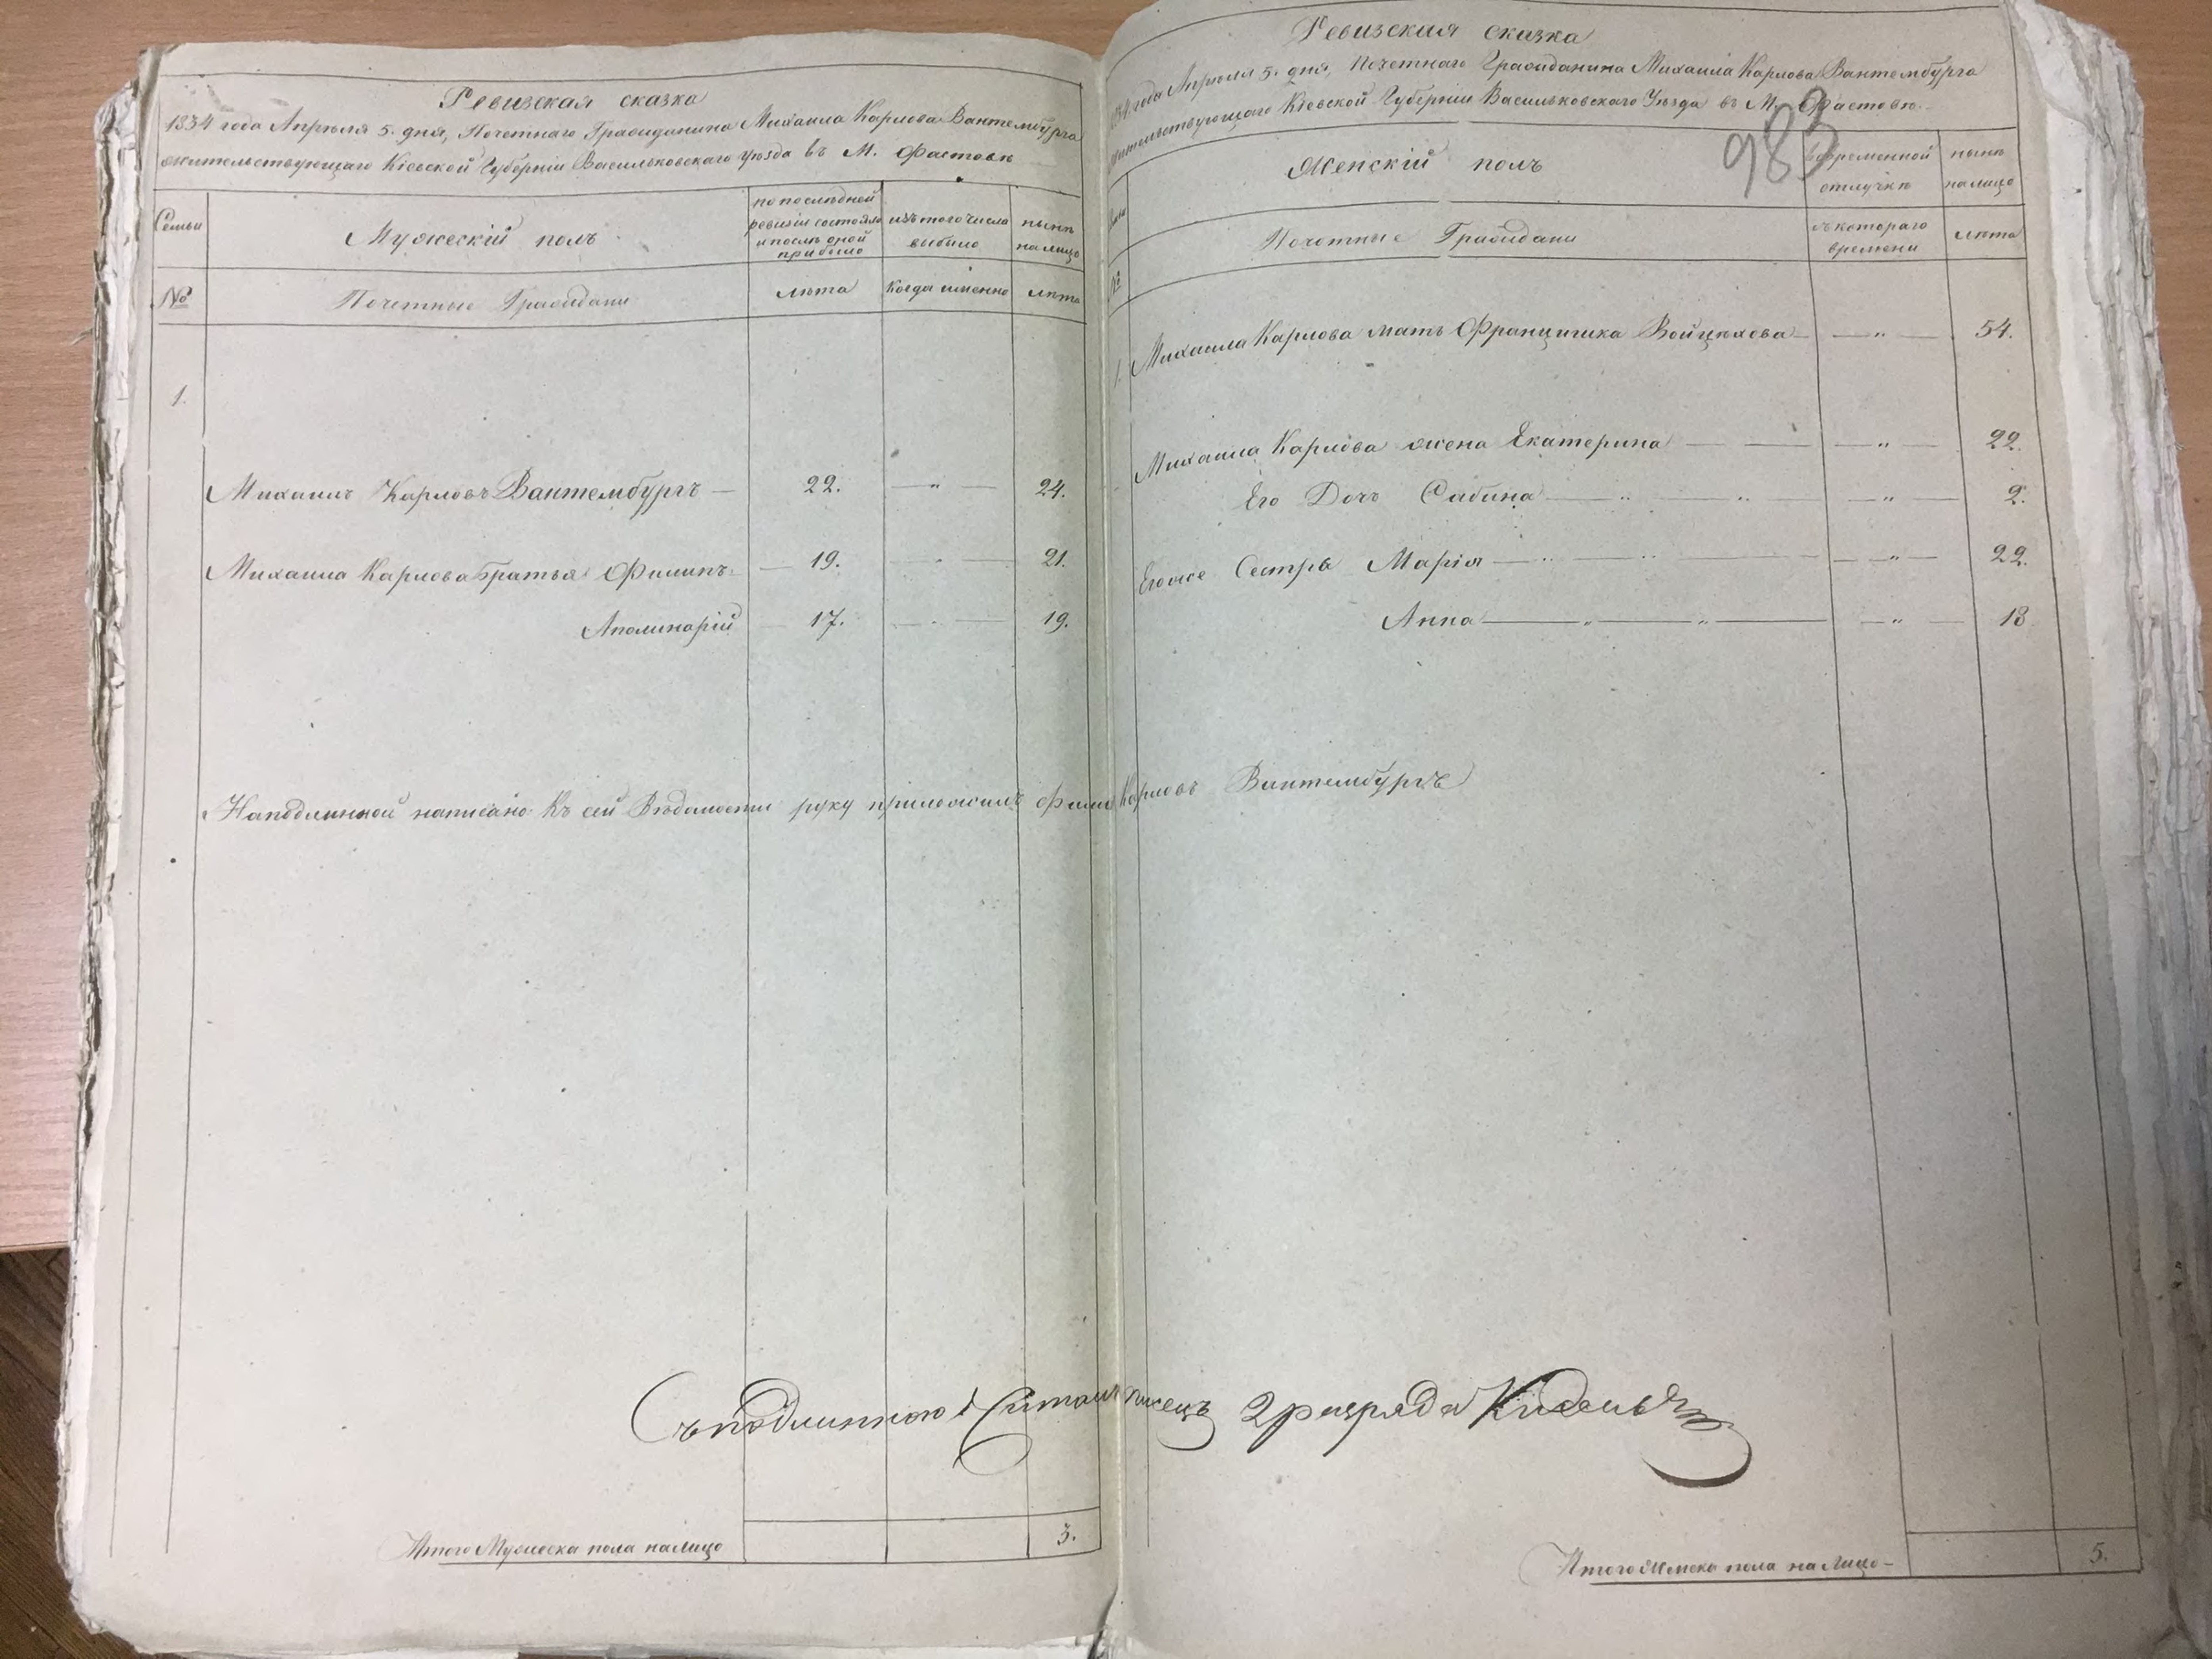 Ревизская сказка
1834 года Апрѣля 5. дня, Почетнаго Гражданина Михаила Карлова Вантембурга
жительствующаго Кіевской Губерніи Васильковскаго уѣзда въ М. Фастовѣ
Семьи
Мужескій полъ
по послѣдной
ревизіи состояло
и послѣ оной
прибыло
изъ того числа
выбыло
нынѣ
на лицо
№
Почетные Граждани
лѣта
Когда именно
лѣта
1.
Михаилъ Карловъ Вантембургъ — 22. — " — 24.
Михаила Карлова братья Филипъ — 19. — " — 21.
Аполинарій — 17. — " — 19.
Наподлинной написано: Къ сей Вѣдомости руку приложилъ Фили Карловъ Вантембургъ
Съ подлинною Читалъ писецъ 2 разряда
Итого Мужеска пола на лицо 3.
Ревизская сказка
года Апрѣля 5. дня, Почетнаго Гражданина Михаила Карлова Вантембурга
жительствующаго Кіевской Губерніи Васильковскаго Уѣзда въ М. Фастовѣ.
983
Женскій полъ
временной
отлучкѣ
нынѣ
на лицо
№
Почетные Граждани
съ котораго
времени
лѣта
1. Михаила Карлова мать Францишка Войцѣхова — " — 54.
Михаила Карлова жена Екатерина — — — " — 22.
Его Дочь Сабина — " — " — " — 2.
Егоже Сестра Марія — " — " — " — 22.
Анна — " — " — " — 18
Итого Женска пола на Лицо — 5.